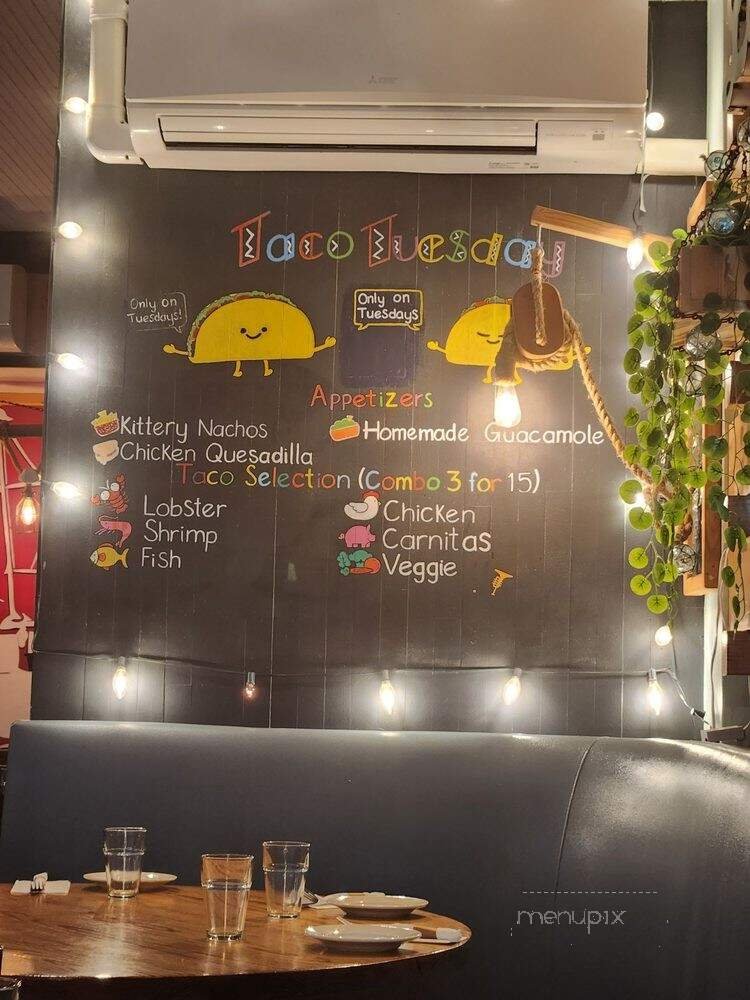 MITSUBISHI
Taco Tuesday
Only on Tuesdays!
Only on
Tuesdays
Appetizers
Kittery Nachos
Homemade Guacamole
Chicken Quesadilla
Taco Selection (Combo 3 for 15)
Lobster
Chicken
Shrimp
Carnitas
Fish
Veggie
menupix